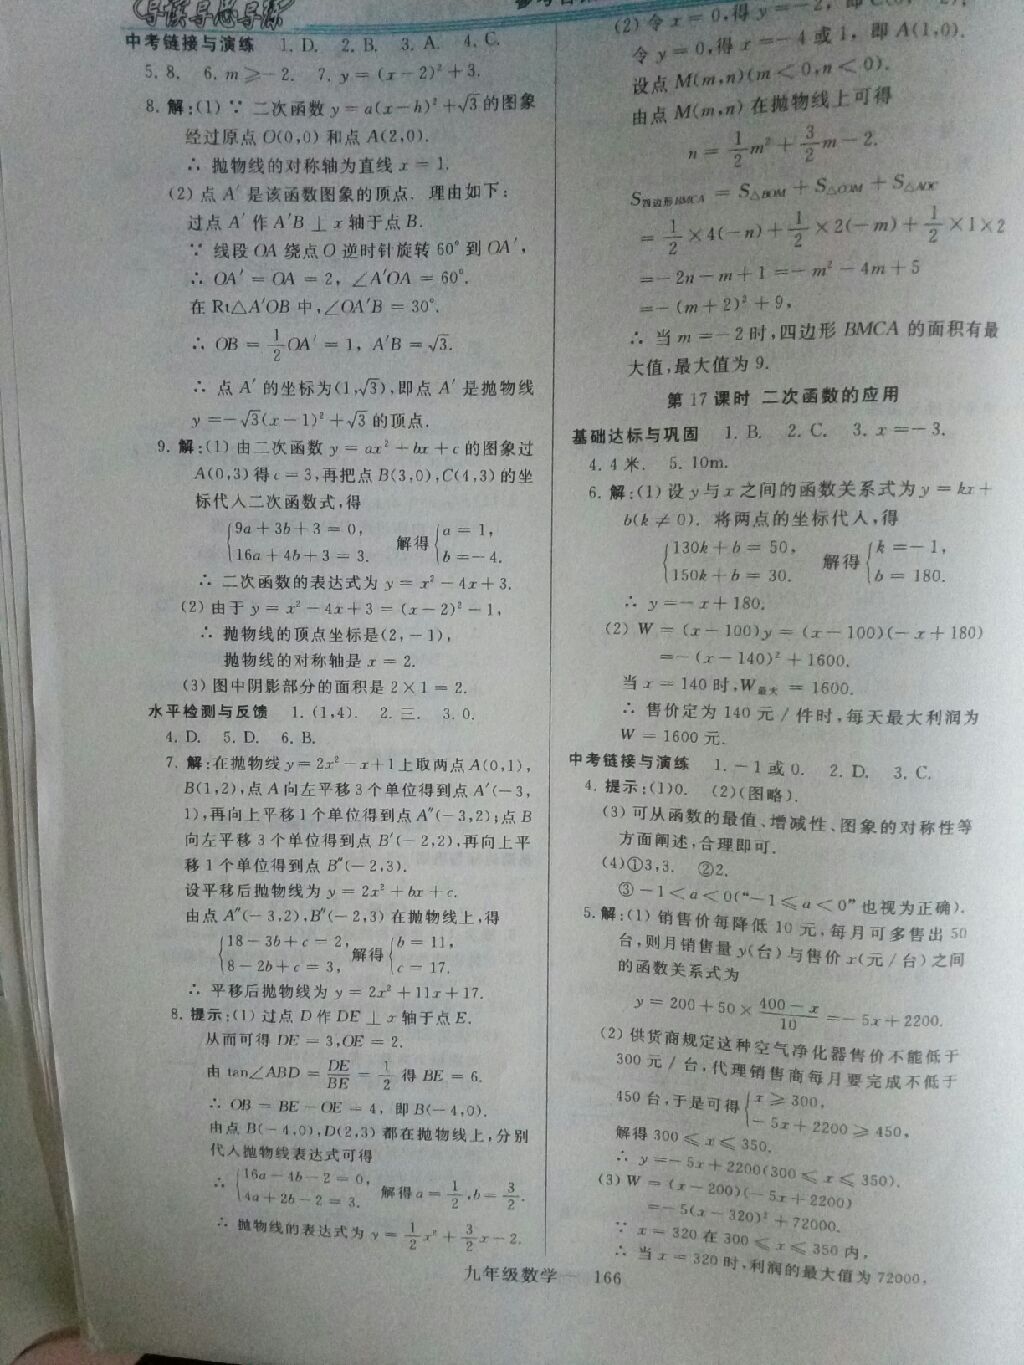 导读导思导练
中考链接与演练 1. D. 2. B. 3. A. 4. C.
5. 8. 6. m⩾-2. 7. y=(x-2)²+3.
8. 解:(1)∵ 二次函数 y=a(x-h)²+√3的图象
经过原点 O(0,0) 和点 A(2,0).
∴ 抛物线的对称轴为直线 x=1.
(2)点 A′ 是该函数图象的顶点. 理由如下:
过点 A′ 作 A′B⊥x 轴于点 B.
∵ 线段 OA 绕点 O 逆时针旋转 60°到 OA′,
∴ OA′=OA=2, ∠A′OA=60°.
在 Rt△A′OB 中,∠OA′B=30°.
∴ OB=1/2OA′=1, A′B=√3.
∴ 点 A′ 的坐标为(1,√3),即点 A′ 是抛物线
y=-√3(x-1)²+√3 的顶点.
9. 解:(1)由二次函数 y=ax²+bx+c 的图象过
A(0,3)得 c=3,再把点 B(3,0),C(4,3)的坐
标代入二次函数式,得
{9a+3b+3=0, 16a+4b+3=3. 解得 {a=1, b=-4.
∴ 二次函数的表达式为 y=x²-4x+3.
(2)由于 y=x²-4x+3=(x-2)²-1,
∴ 抛物线的顶点坐标是(2,-1),
抛物线的对称轴是 x=2.
(3)图中阴影部分的面积是 2×1=2.
水平检测与反馈 1. (1,4). 2. 三. 3. 0.
4. D. 5. D. 6. B.
7. 解:在抛物线 y=2x²-x+1上取两点 A(0,1),
B(1,2),点 A 向左平移 3 个单位得到点 A′(-3,
1),再向上平移 1 个单位得到点 A″(-3,2);点 B
向左平移 3 个单位得到点 B′(-2,2),再向上平
移 1 个单位得到点 B″(-2,3).
设平移后抛物线为 y=2x²+bx+c.
由点 A″(-3,2),B″(-2,3)在抛物线上,得
{18-3b+c=2, 8-2b+c=3, 解得 {b=11, c=17.
∴ 平移后抛物线为 y=2x²+11x+17.
8. 提示:(1)过点 D 作 DE⊥x 轴于点 E.
从而可得 DE=3,OE=2.
由 tan∠ABD=DE/BE=1/2 得 BE=6.
∴ OB=BE-OE=4, 即 B(-4,0).
由点 B(-4,0),D(2,3)都在抛物线上,分别
代入抛物线表达式可得
∴ {16a-4b-2=0, 4a+2b-2=3. 解得 a=1/2,b=3/2.
∴ 抛物线的表达式为 y=1/2x²+3/2x-2.
(2)令 x=0,得 y=-2, 即
令 y=0,得 x=-4 或 1, 即 A(1,0).
设点 M(m,n)(m<0,n<0).
由点 M(m,n) 在抛物线上可得
n=1/2m²+3/2m-2.
S四边形BMCA=S△BOM+S△COM+S△AOC
=1/2×4(-n)+1/2×2(-m)+1/2×1×2
=-2n-m+1=-m²-4m+5
=-(m+2)²+9,
∴ 当 m=-2 时,四边形 BMCA 的面积有最
大值,最大值为 9.
第 17 课时 二次函数的应用
基础达标与巩固 1. B. 2. C. 3. x=-3.
4. 4 米. 5. 10m.
6. 解:(1)设 y 与 x 之间的函数关系式为 y=kx+
b(k≠0). 将两点的坐标代入,得
{130k+b=50, 150k+b=30. 解得 {k=-1, b=180.
∴ y=-x+180.
(2) W=(x-100)y=(x-100)(-x+180)
=-(x-140)²+1600.
当 x=140 时,W最大=1600.
∴ 售价定为 140 元/件时,每天最大利润为
W=1600 元.
中考链接与演练 1. -1 或 0. 2. D. 3. C.
4. 提示:(1)0. (2)(图略).
(3)可从函数的最值、增减性、图象的对称性等
方面阐述,合理即可.
(4)①3,3. ②2.
③-1<a<0(“-1⩽a<0”也视为正确).
5. 解:(1)销售价每降低 10 元,每月可多售出 50
台,则月销售量 y(台)与售价 x(元/台)之间
的函数关系式为
y=200+50×(400-x)/10=-5x+2200.
(2)供货商规定这种空气净化器售价不能低于
300 元/台,代理销售商每月要完成不低于
450 台,于是可得 {x⩾300, -5x+2200⩾450.
解得 300⩽x⩽350.
∴ y=-5x+2200(300⩽x⩽350).
(3) W=(x-200)(-5x+2200)
=-5(x-320)²+72000.
∵ x=320 在 300⩽x⩽350 内,
∴ 当 x=320 时,利润的最大值为 72000,
九年级数学 166